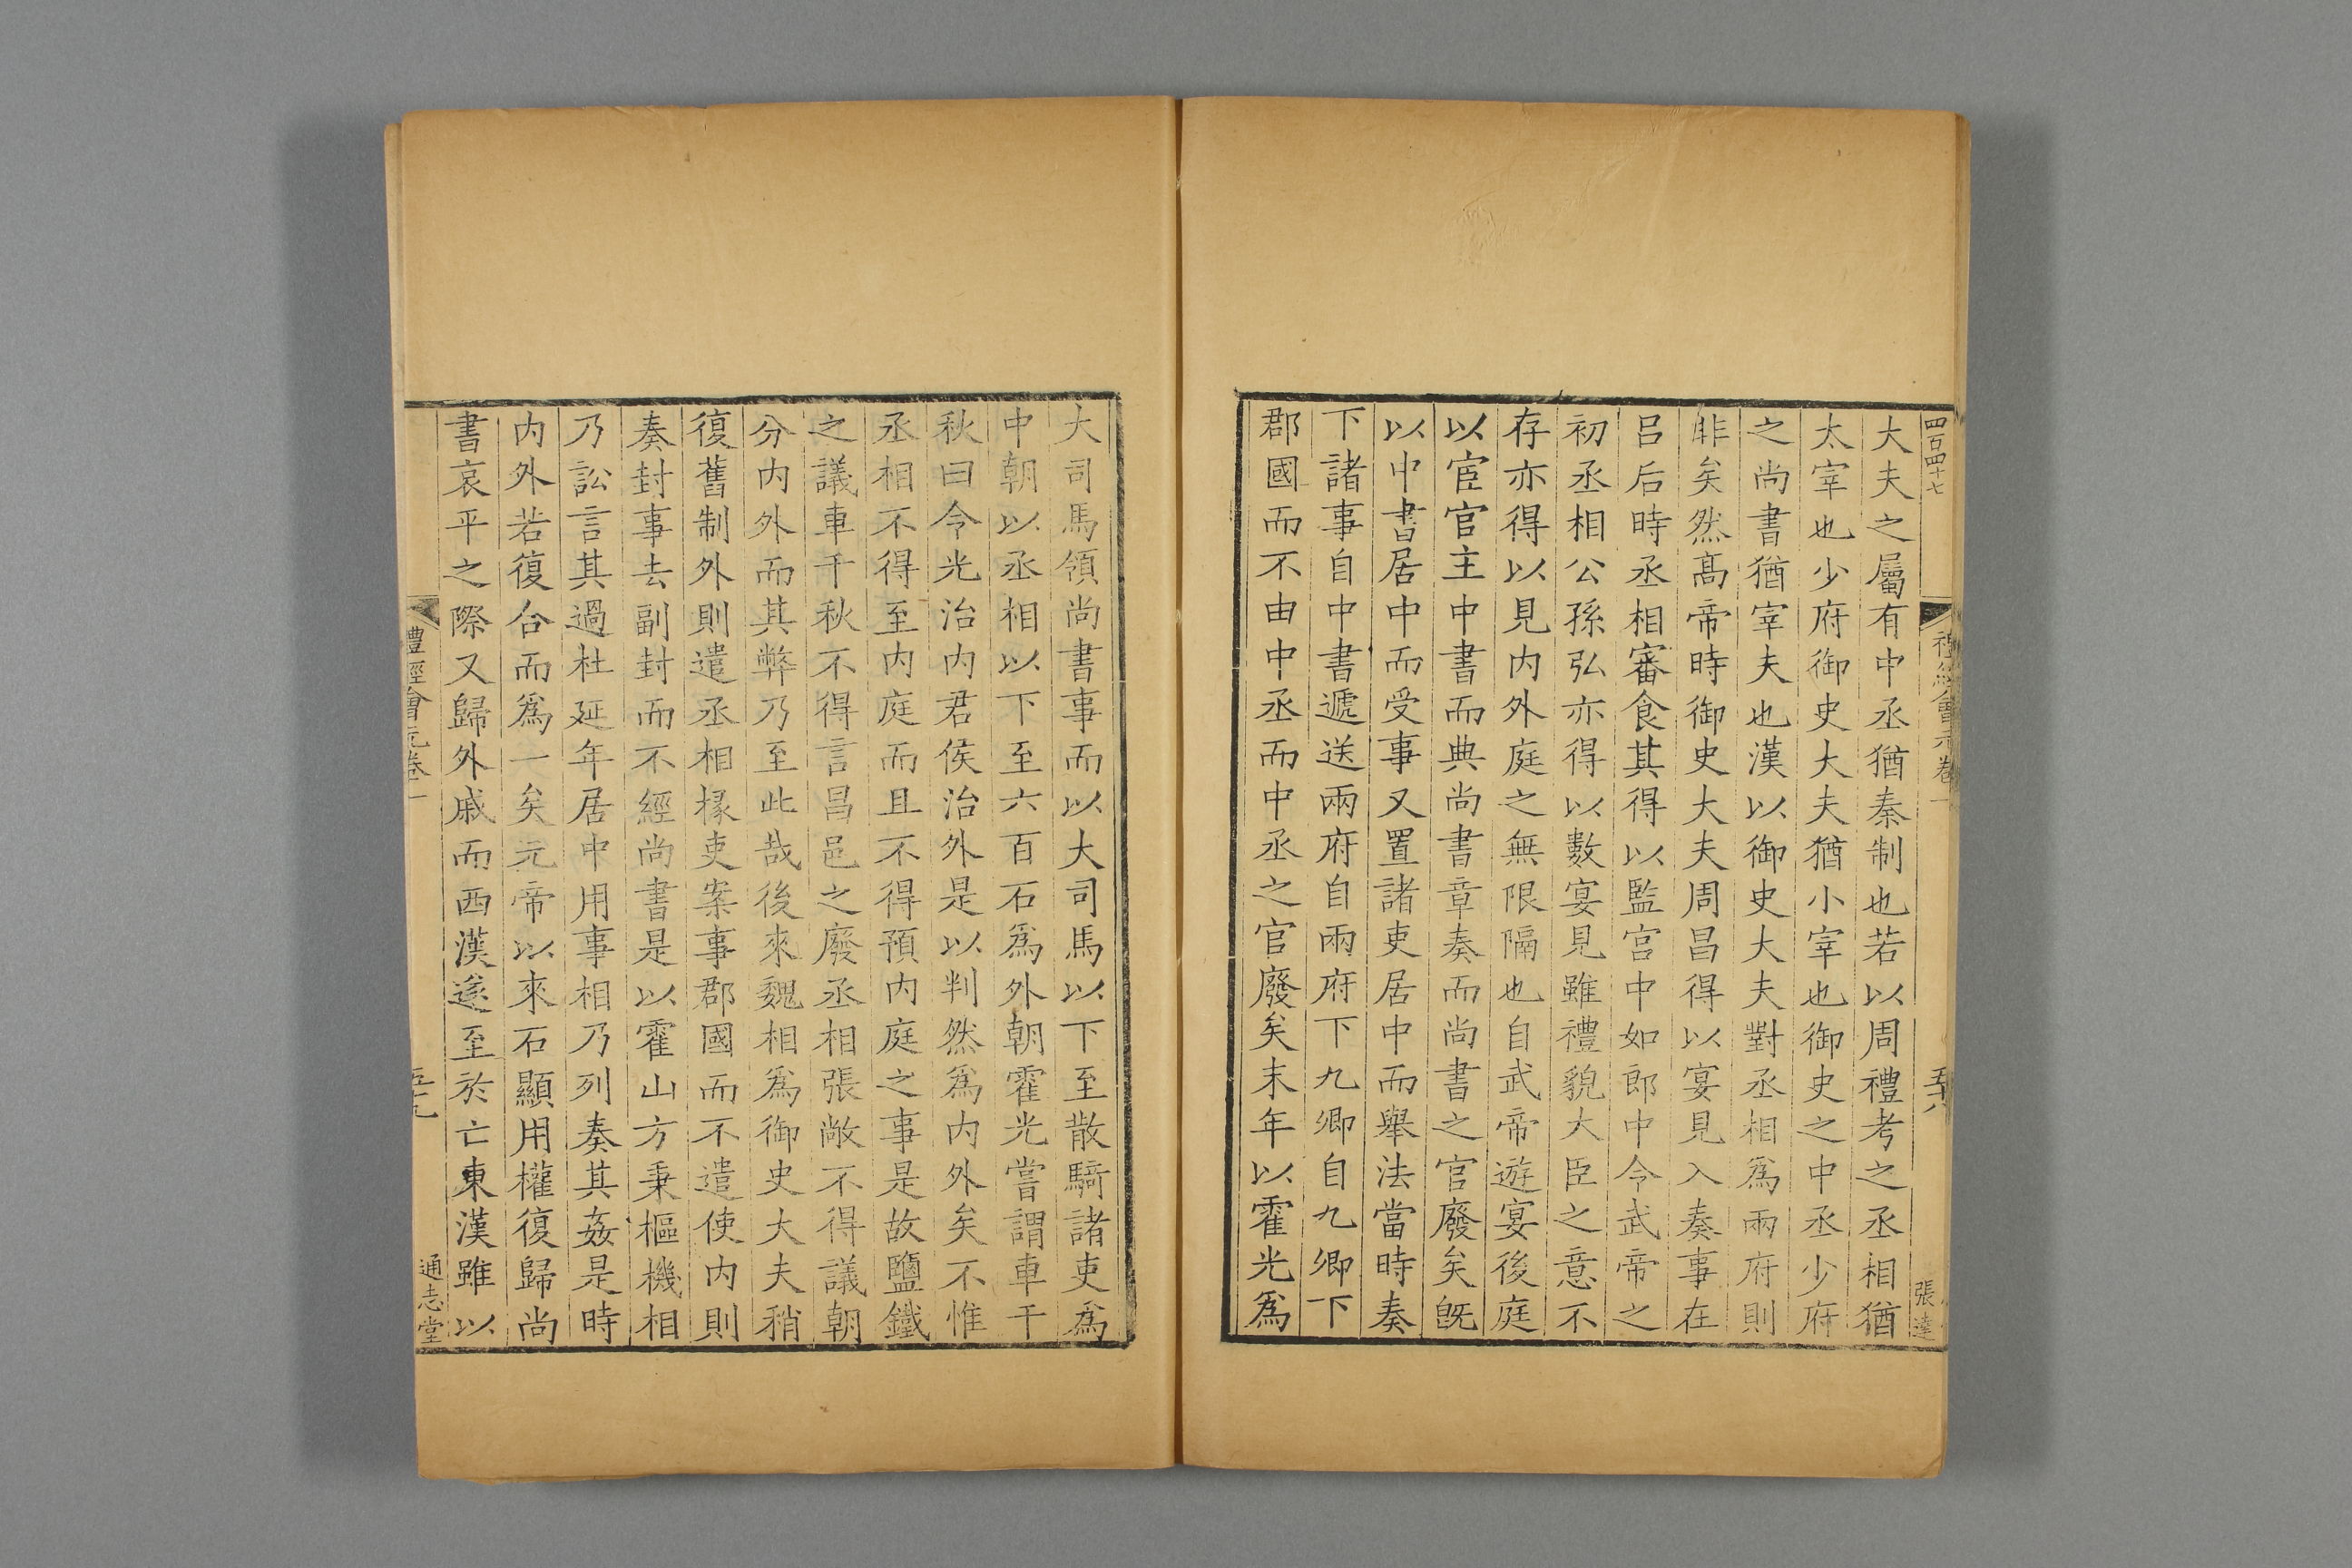 四百四十七
禮經會元卷一
五十八
張達
大夫之屬有中丞猶秦制也若以周禮考之丞相猶
太宰也少府御史大夫猶小宰也御史之中丞少府
之尚書猶宰夫也漢以御史大夫對丞相爲兩府則
非矣然高帝時御史大夫周昌得以宴見入奏事在
呂后時丞相審食其得以監宮中如郎中令武帝之
初丞相公孫弘亦得以數宴見雖禮貌大臣之意不
存亦得以見内外庭之無限隔也自武帝遊宴後庭
以宦官主中書而典尚書章奏而尚書之官廢矣旣
以中書居中而受事又置諸吏居中而舉法當時奏
下諸事自中書遞送兩府自兩府下九卿自九卿下
郡國而不由中丞而中丞之官廢矣末年以霍光爲
大司馬領尚書事而以大司馬以下至散騎諸吏爲
中朝以丞相以下至六百石爲外朝霍光嘗謂車千
秋曰令光治内君侯治外是以判然爲内外矣不惟
丞相不得至内庭而且不得預内庭之事是故鹽鐵
之議車千秋不得言昌邑之廢丞相張敞不得議朝
分内外而其弊乃至此哉後來魏相爲御史大夫稍
復舊制外則遣丞相掾吏案事郡國而不遣使内則
奏封事去副封而不經尚書是以霍山方秉樞機相
乃訟言其過杜延年居中用事相乃列奏其姦是時
内外若復合而爲一矣元帝以來石顯用權復歸尚
書哀平之際又歸外戚而西漢遂至於亡東漢雖以
禮經會元卷一
五十九
通志堂